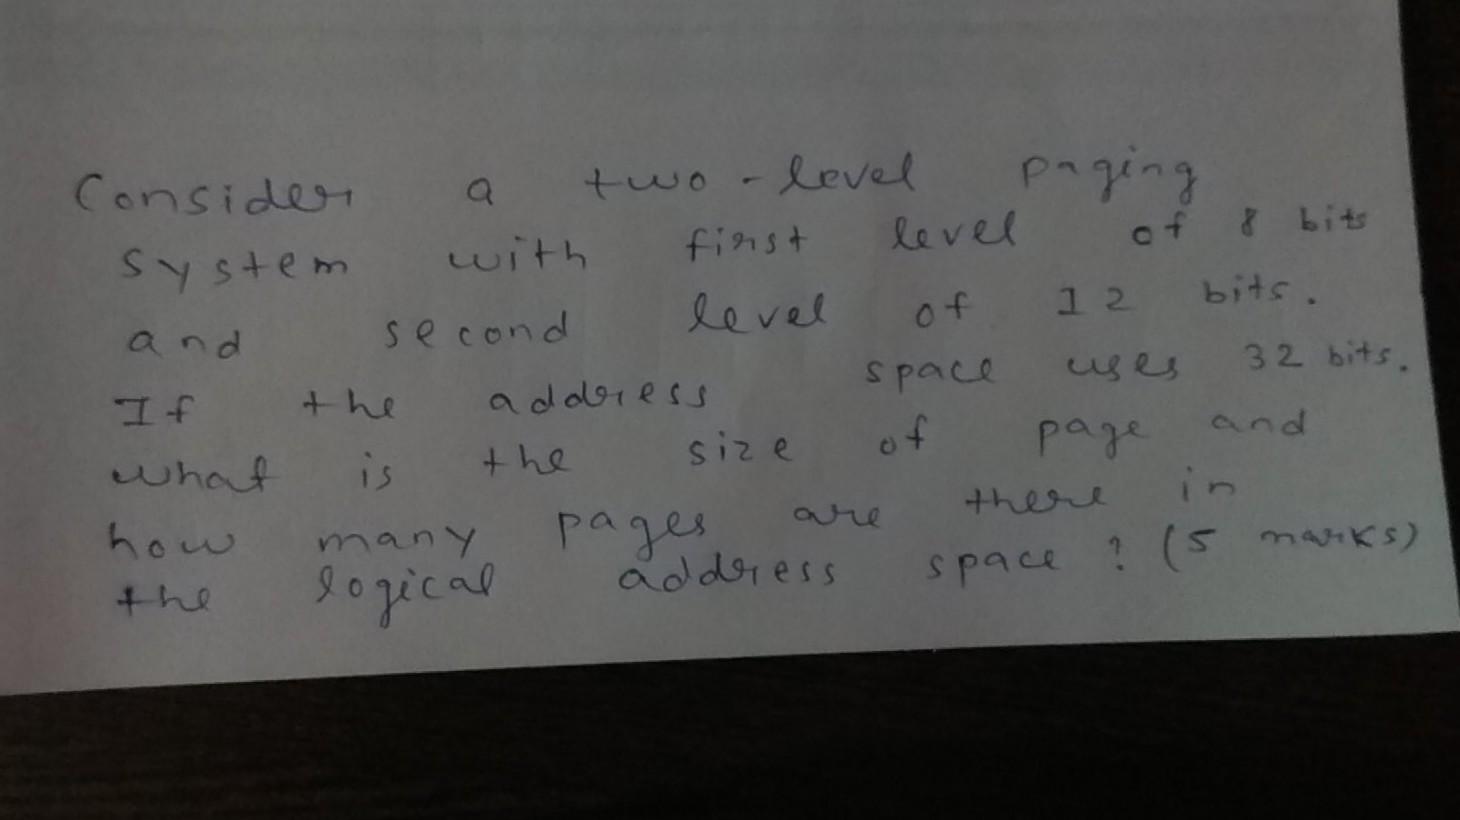 Consider a two-level paging
system with first level of 8 bits
and second level of 12 bits.
If the address space uses 32 bits.
what is the size of page and
how many pages are there in
the logical address space? (5 marks)